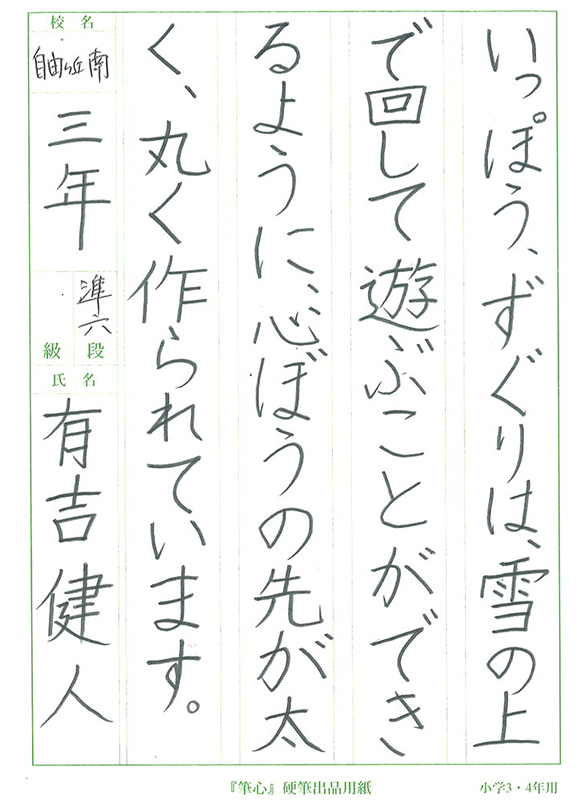 いっぽう、ずぐりは、雪の上
で回して遊ぶことができ
るように、心ぼうの先が太
く、丸く作られています。
校名
自由ヶ丘南
三年
準六
級段
氏名
有吉健人
『筆心』硬筆出品用紙
小学3・4年用